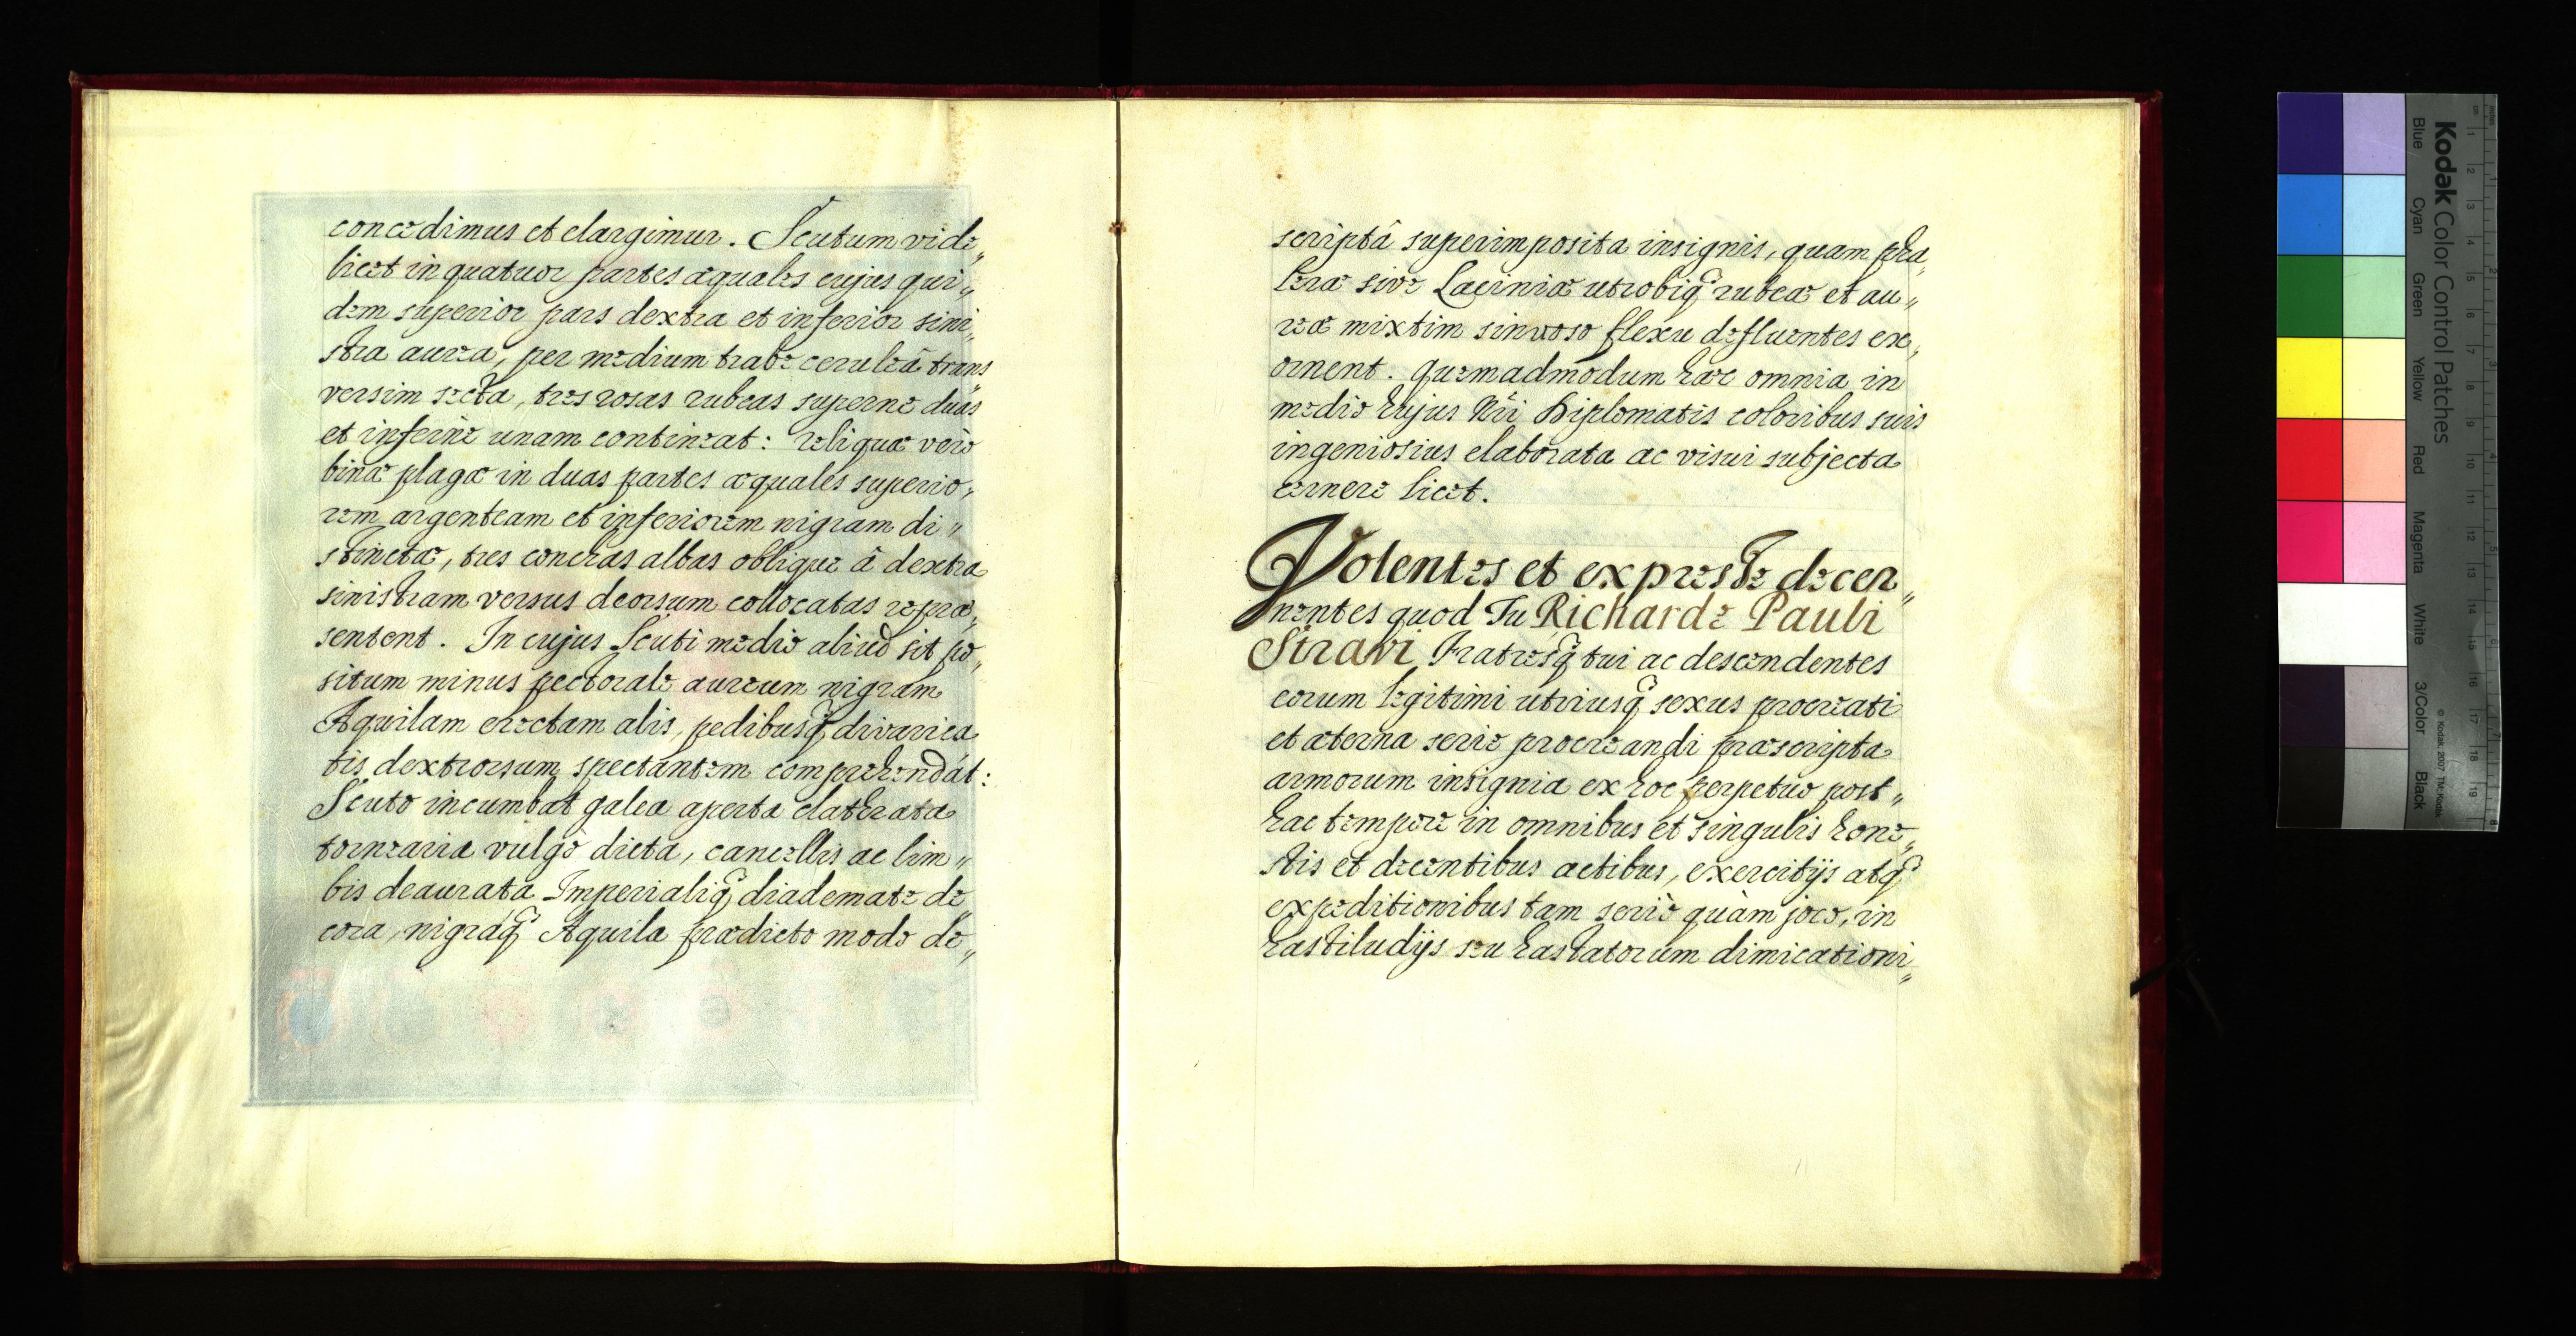 concedimus et elargimur. Scutum vide„
licet in quatuor partes æquales cujus qui„
dem superior pars dextra et inferior sini„
stra aurea, per medium trabe ceruleâ trans„
versim secta, tres rosas rubeas superne duas
et inferne unam contineat: reliquæ verò
binæ plagæ in duas partes æquales superio„
rem argenteam et inferiorem nigram di„
stinctæ, tres conchas albas oblique â dextra
sinistram versus deorsum collocatas repræ„
sentent. In cujus Scuti medio aliud sit po„
situm minus pectorale aureum nigram
Aquilam erectam alis, pedibusq̃ divarica
tis dextrorsum spectantem comprehendat:
Scuto incumbat galea aperta clathrata
torneария vulgò dicta, cancellis ac lim„
bis deaurata Imperialiq̃ diademate de
cora, nigráq̃ Aquila prædicto modo de„
scriptâ superimposita insignis, quam pha„
leræ sive Laciniæ utrobiq̃ rubeæ et au„
reæ mixtim sinuoso flexu defluentes ex„
ornent. quemadmodum hæc omnia in
medio hujus Nr̃i Diplomatis coloribus suis
ingeniosius elaborata ac visui subjecta
cernere licet.
Volentes et expresse decer„
nentes quod Tu Richarde Pauli
Stravi Fratresq̃ tui ac descendentes
eorum legitimi utriusq̃ sexus procreati
et æterna serie procreandi præscripta
armorum insignia ex hoc perpetuo post„
hac tempore in omnibus et singulis hone„
stis et decentibus actibus, exercitijs atq̃
expeditionibus tam seriò quàm joco, in
hastiludijs seu hastatorum dimicationi„
Kodak Color Control Patches
Blue Cyan Green Yellow Red Magenta White 3/Color Black
© Kodak, 2007 TM: Kodak